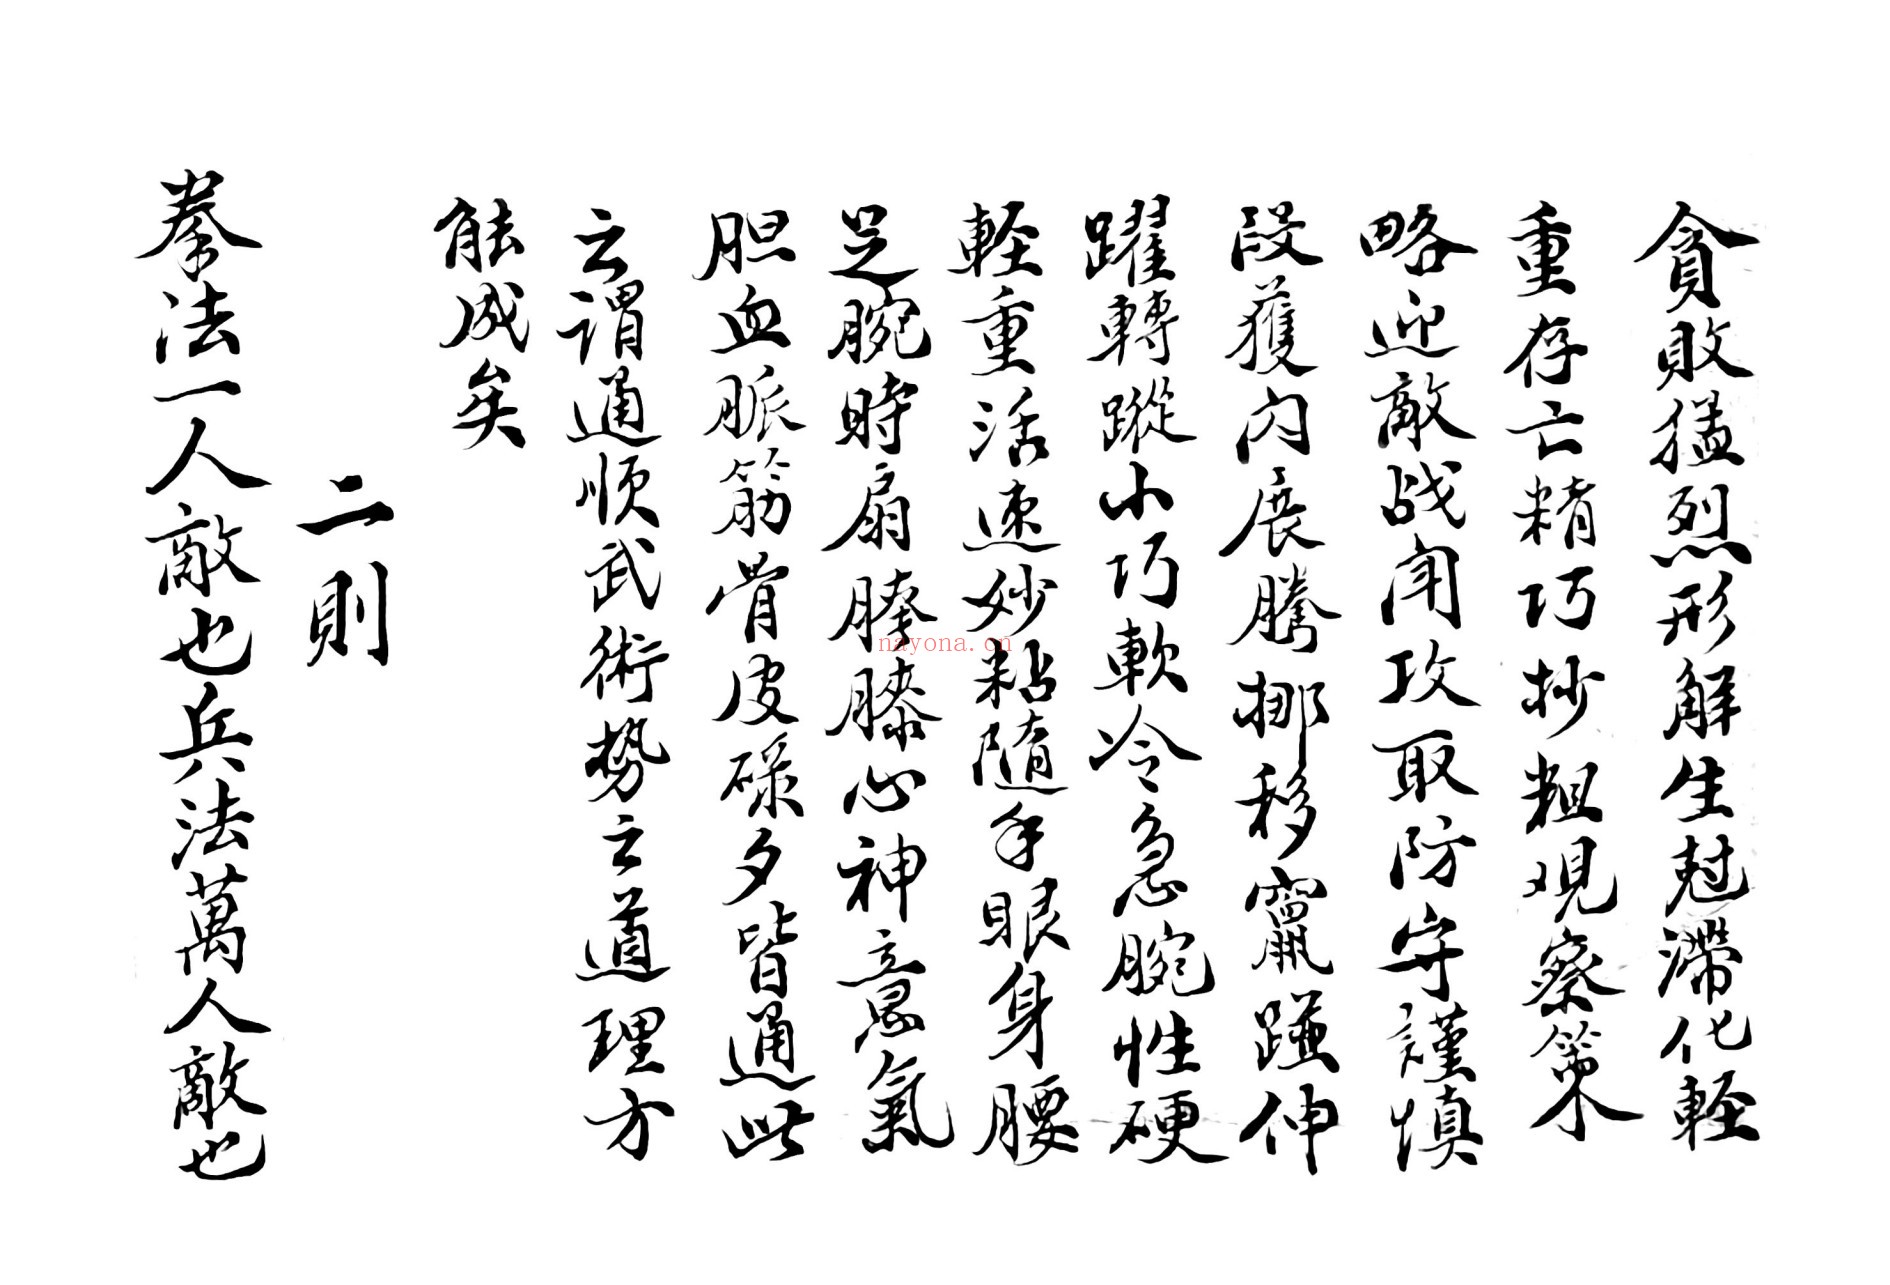 貪敗猛烈形解生尅滯化輕
重存亡精巧抄粗观察策
略迎敵战闻攻取防守謹慎
段獲内展騰挪移竄踫伸
躍轉蹤小巧軟冷急腕性硬
輕重活速妙粘隨手眼身腰
足腕時扇膝心神意氣
胆血脈筋骨皮碌夕皆通此
云谓通顺武術势云道理方
能成矣
二則
拳法一人敵也兵法萬人敵也
nayona.cn